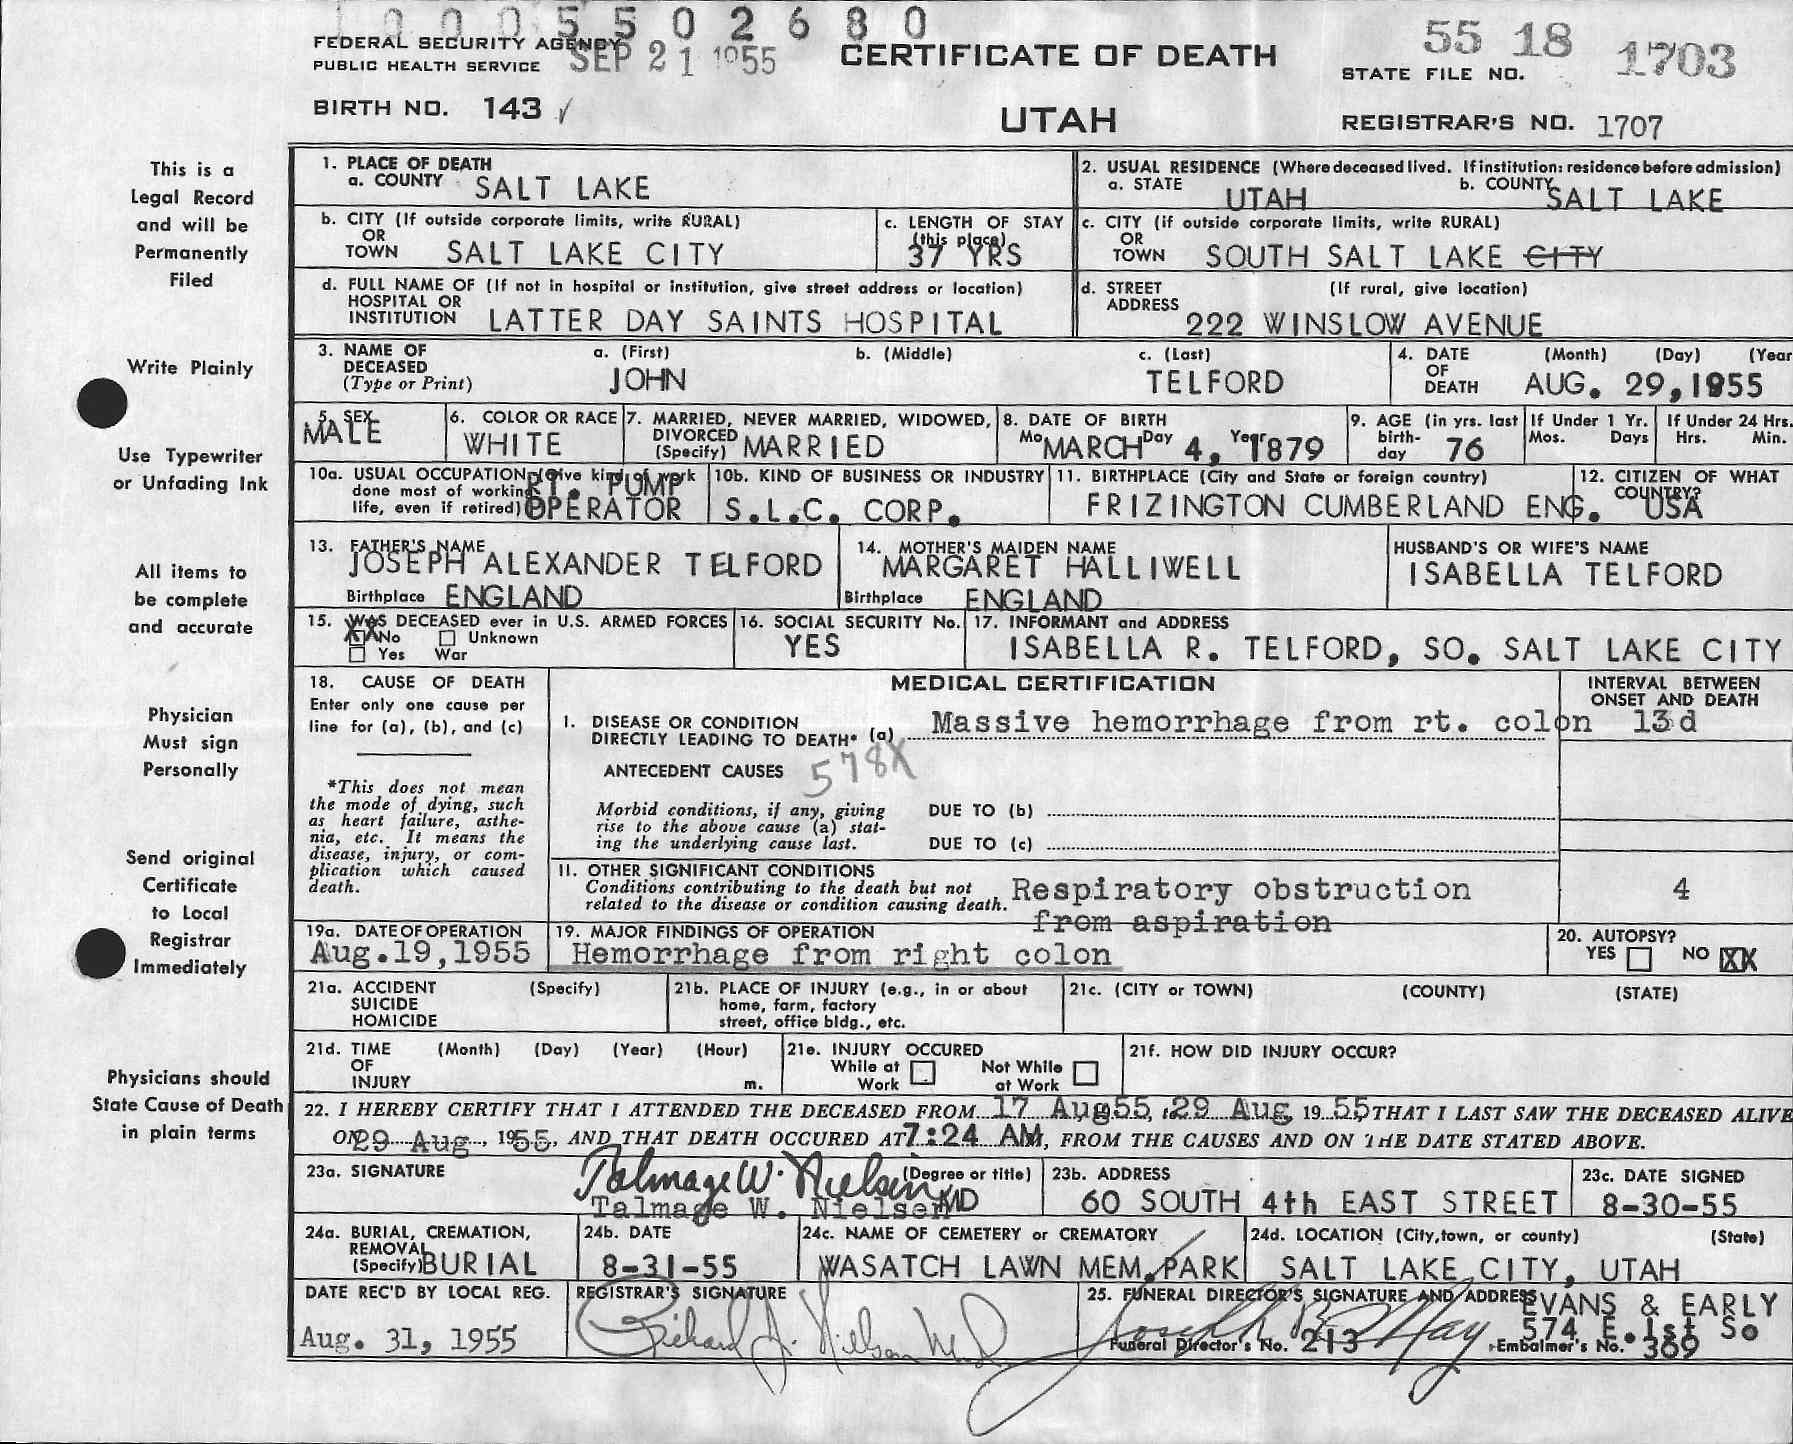 1 0 0 0 5 5 0 2 6 8 0
FEDERAL SECURITY AGENCY
PUBLIC HEALTH SERVICE
SEP 21 1955
CERTIFICATE OF DEATH
UTAH
55 18 1703
STATE FILE NO.
BIRTH NO. 143
REGISTRAR'S NO. 1707
This is a
Legal Record
and will be
Permanently
Filed
Write Plainly
Use Typewriter
or Unfading Ink
All items to
be complete
and accurate
Physician
Must sign
Personally
Send original
Certificate
to Local
Registrar
Immediately
Physicians should
State Cause of Death
in plain terms
1. PLACE OF DEATH
a. COUNTY SALT LAKE
2. USUAL RESIDENCE (Where deceased lived. If institution: residence before admission)
a. STATE UTAH b. COUNTY SALT LAKE
b. CITY (If outside corporate limits, write RURAL)
OR
TOWN SALT LAKE CITY
c. LENGTH OF STAY
(this place)
37 YRS
c. CITY (if outside corporate limits, write RURAL)
OR
TOWN SOUTH SALT LAKE CITY
d. FULL NAME OF (If not in hospital or institution, give street address or location)
HOSPITAL OR
INSTITUTION LATTER DAY SAINTS HOSPITAL
d. STREET (If rural, give location)
ADDRESS 222 WINSLOW AVENUE
3. NAME OF DECEASED (Type or Print)
a. (First) b. (Middle) c. (Last)
JOHN TELFORD
4. DATE OF DEATH (Month) (Day) (Year
AUG. 29, 1955
5. SEX
MALE
6. COLOR OR RACE
WHITE
7. MARRIED, NEVER MARRIED, WIDOWED,
DIVORCED
(Specify) MARRIED
8. DATE OF BIRTH
Mo MARCH Day 4, Year 1879
9. AGE (in yrs. last
birth-
day 76
If Under 1 Yr.
Mos. Days
If Under 24 Hrs.
Hrs. Min.
10a. USUAL OCCUPATION (Give kind of work
done most of working
life, even if retired) RT. PUMP
OPERATOR
10b. KIND OF BUSINESS OR INDUSTRY
S.L.C. CORP.
11. BIRTHPLACE (City and State or foreign country)
FRIZINGTON CUMBERLAND ENG.
12. CITIZEN OF WHAT
COUNTRY?
USA
13. FATHER'S NAME
JOSEPH ALEXANDER TELFORD
Birthplace ENGLAND
14. MOTHER'S MAIDEN NAME
MARGARET HALLIWELL
Birthplace ENGLAND
HUSBAND'S OR WIFE'S NAME
ISABELLA TELFORD
15. WAS DECEASED ever in U.S. ARMED FORCES
XX No Unknown
Yes War
16. SOCIAL SECURITY No.
YES
17. INFORMANT and ADDRESS
ISABELLA R. TELFORD, SO. SALT LAKE CITY
18. CAUSE OF DEATH
Enter only one cause per
line for (a), (b), and (c)
*This does not mean
the mode of dying, such
as heart failure, asthe-
nia, etc. It means the
disease, injury, or com-
plication which caused
death.
MEDICAL CERTIFICATION
INTERVAL BETWEEN
ONSET AND DEATH
I. DISEASE OR CONDITION
DIRECTLY LEADING TO DEATH* (a) Massive hemorrhage from rt. colon 13 d
ANTECEDENT CAUSES 578X
Morbid conditions, if any, giving
rise to the above cause (a) stat-
ing the underlying cause last.
DUE TO (b)
DUE TO (c)
II. OTHER SIGNIFICANT CONDITIONS
Conditions contributing to the death but not
related to the disease or condition causing death.
Respiratory obstruction 4
from aspiration
19a. DATE OF OPERATION
Aug.19,1955
19. MAJOR FINDINGS OF OPERATION
Hemorrhage from right colon
20. AUTOPSY?
YES NO XX
21a. ACCIDENT (Specify)
SUICIDE
HOMICIDE
21b. PLACE OF INJURY (e.g., in or about
home, farm, factory
street, office bldg., etc.
21c. (CITY or TOWN) (COUNTY) (STATE)
21d. TIME (Month) (Day) (Year) (Hour)
OF
INJURY m.
21e. INJURY OCCURED
While at Work
Not While at Work
21f. HOW DID INJURY OCCUR?
22. I HEREBY CERTIFY THAT I ATTENDED THE DECEASED FROM 17 Aug 55, 29 Aug, 19 55 THAT I LAST SAW THE DECEASED ALIVE
ON 29 Aug, 1955, AND THAT DEATH OCCURED AT 7:24 AM, FROM THE CAUSES AND ON THE DATE STATED ABOVE.
23a. SIGNATURE (Degree or title)
Talmage W. Nielsen
Talmage W. Nielsen MD
23b. ADDRESS
60 SOUTH 4th EAST STREET
23c. DATE SIGNED
8-30-55
24a. BURIAL, CREMATION,
REMOVAL
(Specify) BURIAL
24b. DATE
8-31-55
24c. NAME OF CEMETERY or CREMATORY
WASATCH LAWN MEM. PARK
24d. LOCATION (City, town, or county) (State)
SALT LAKE CITY, UTAH
DATE REC'D BY LOCAL REG.
Aug. 31, 1955
REGISTRAR'S SIGNATURE
Richard J. Nelson MD
25. FUNERAL DIRECTOR'S SIGNATURE AND ADDRESS
EVANS & EARLY
574 E. 1st So
Funeral Director's No. 213
Embalmer's No. 389